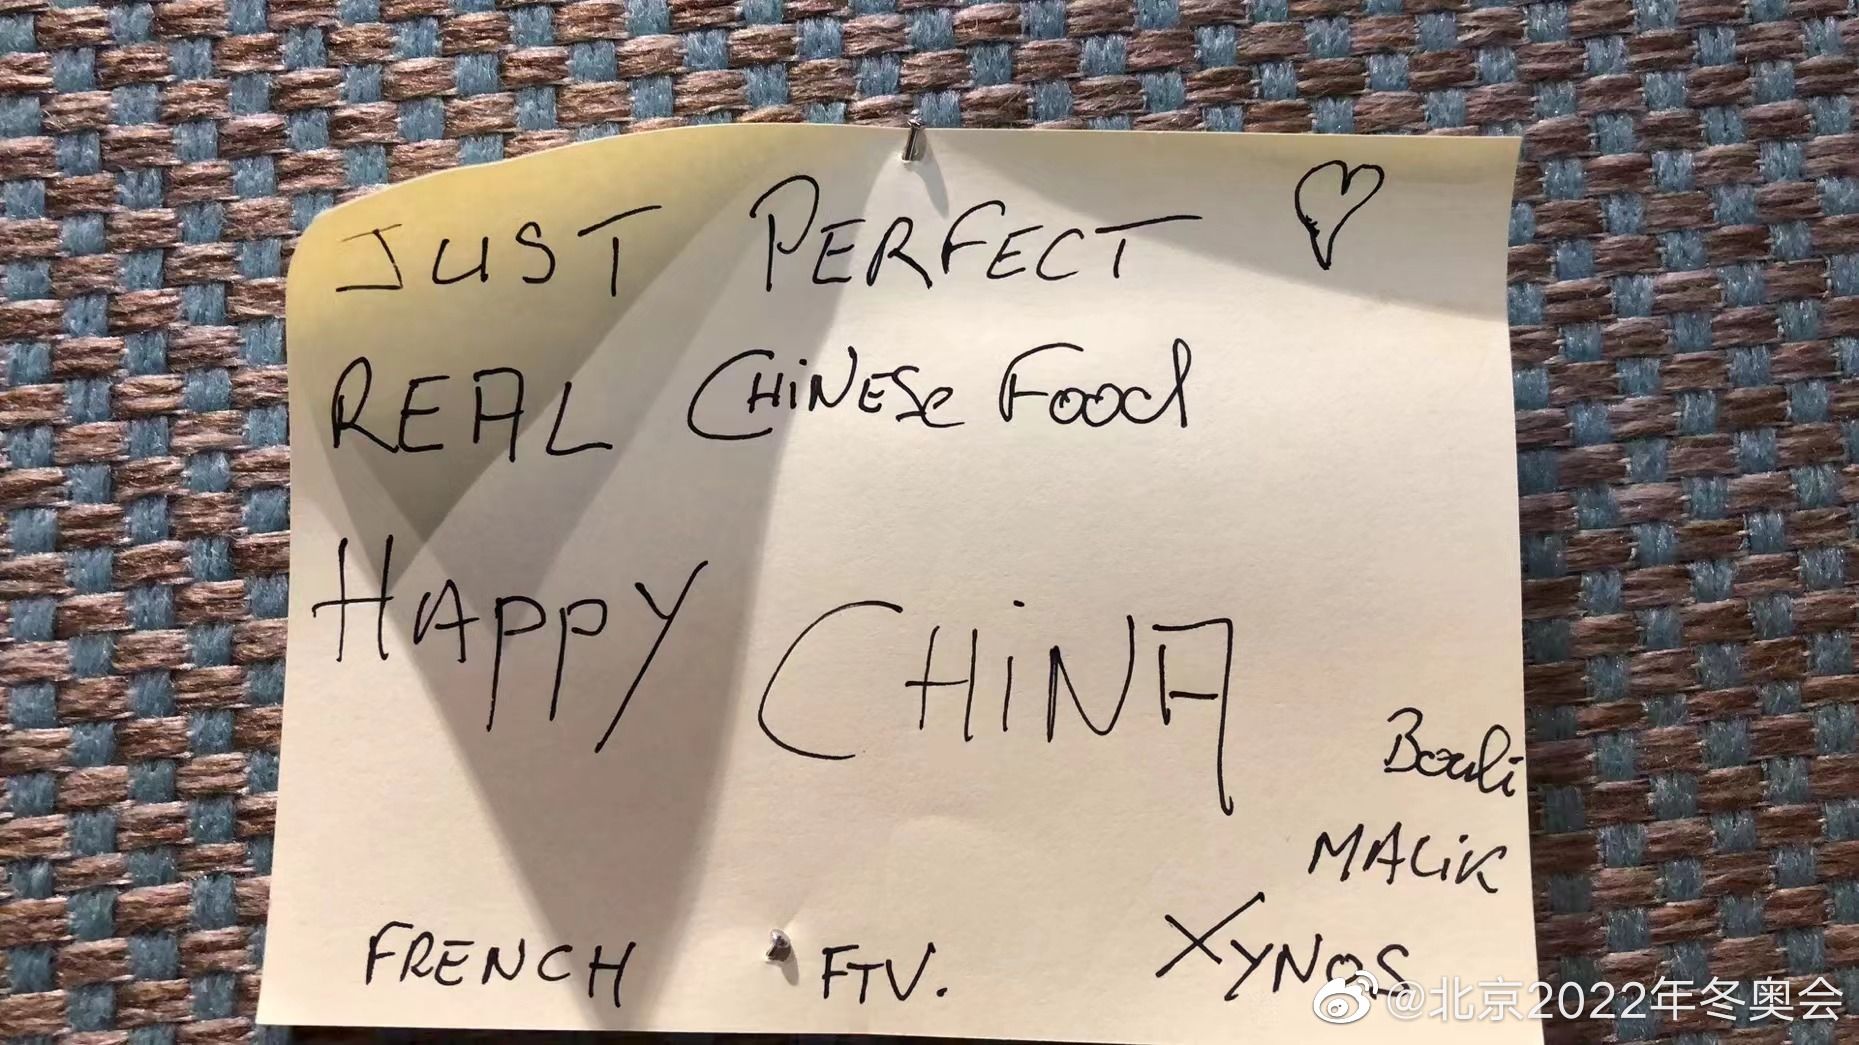 JUST PERFECT
REAL CHiNESe Food
HAPPY CHiNA
Bouli
MALiK
XYNOS
FRENCH FTV.
@北京2022年冬奥会